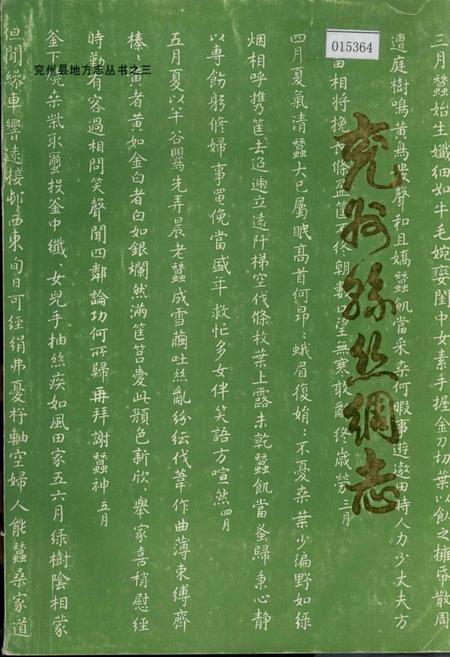 015364
兖州县地方志丛书之三
兖州絲綢志
三月蠶始生纖細如牛毛婉孌閨中女素手握金刀切葉以飲之擁帚散周
遭庭樹鳴黃鳥發聲和且嬌蠶飢當采桑何暇事遊遨田時人力少丈夫方
苗相將挽條盈筐不終朝數望無寒敢辭終歲勞三月
四月夏氣清蠶大已屬眠高首何昂昂蛾眉復娟々不憂桑葉少徧野如綠
烟相呼携筐去迢遞立遠阡梯空伐條枚葉上露未乾蠶飢當蚤歸秉心靜
以專飭躬修婦事黽俛當盛年救忙多女伴笑語方喧然四月
五月夏以半谷鶯先弄晨老蠶成雪繭吐絲亂紛紜伐葦作曲薄束縛齊
榛々黃者黃如金白者白如銀爛然滿筐筥愛此顏色新欣々舉家喜稍慰經
時勤有客過相問笑聲聞四鄰論功何所歸再拜謝蠶神五月
釜下燒桑柴取繭投釜中纖々女兒手抽絲疾如風田家五六月綠樹陰相蒙
但聞繰車響遠接邨西東旬日可經絹弗憂杼軸空婦人能蠶桑家道